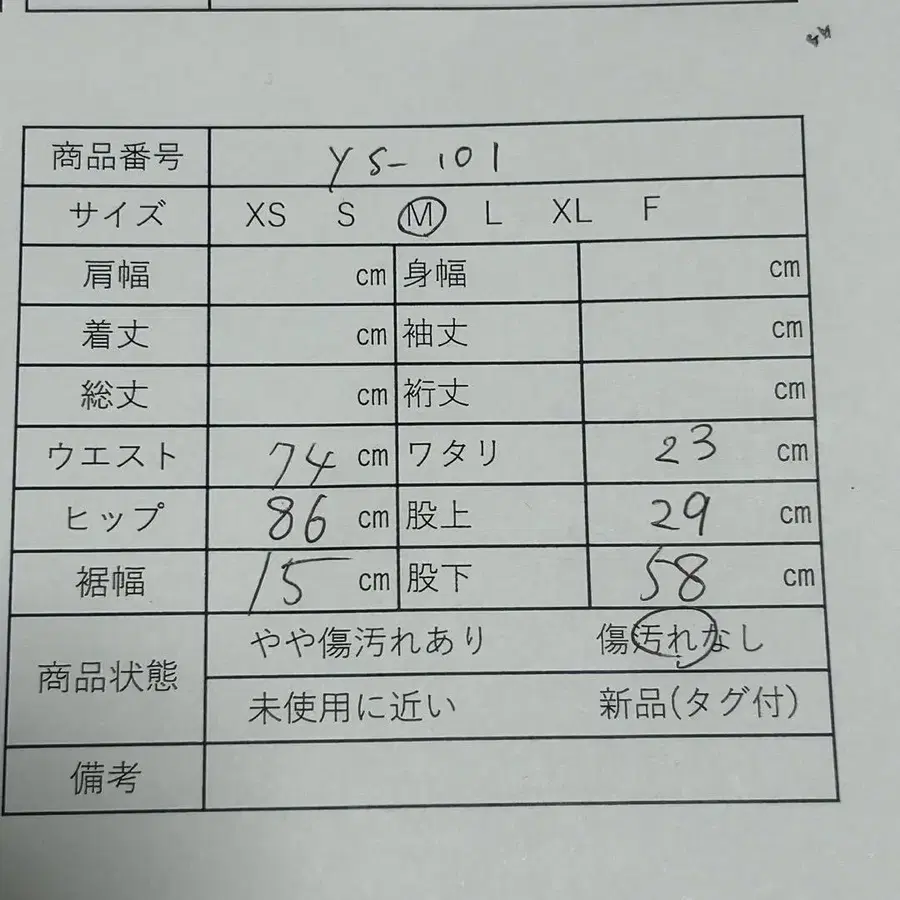 商品番号 YS-101
サイズ XS S M L XL F
肩幅 cm 身幅 cm
着丈 cm 袖丈 cm
総丈 cm 裄丈 cm
ウエスト 74 cm ワタリ 23 cm
ヒップ 86 cm 股上 29 cm
裾幅 15 cm 股下 58 cm
商品状態 やや傷汚れあり 傷汚れなし
未使用に近い 新品(タグ付)
備考